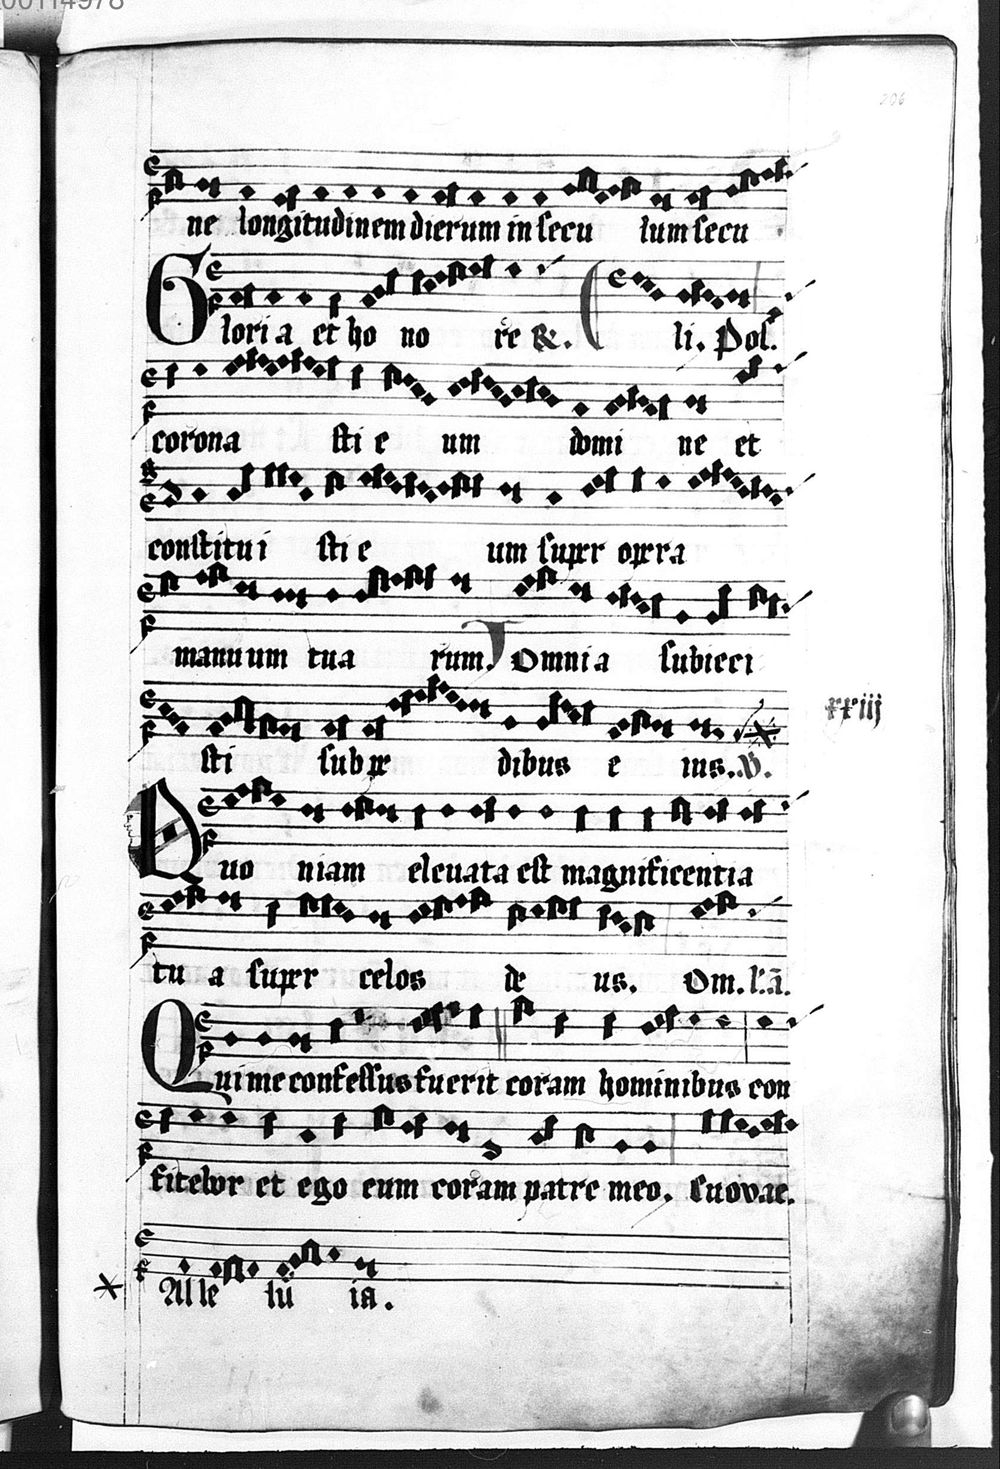 00114978
206
ne longitudinem dierum in secu lum secu
Gloria et ho no re &. li. Pos.
corona sti e um domi ne et
constitui sti e um super opera
manuum tua rum. Omnia subieci
xxiij
sti sub pe dibus e ius. V.
Quo niam eleuata est magnificentia
tu a super celos de us. Om.
Qui me confessus fuerit coram hominibus con
fitebor et ego eum coram patre meo. Euovae.
Alle lu ia.